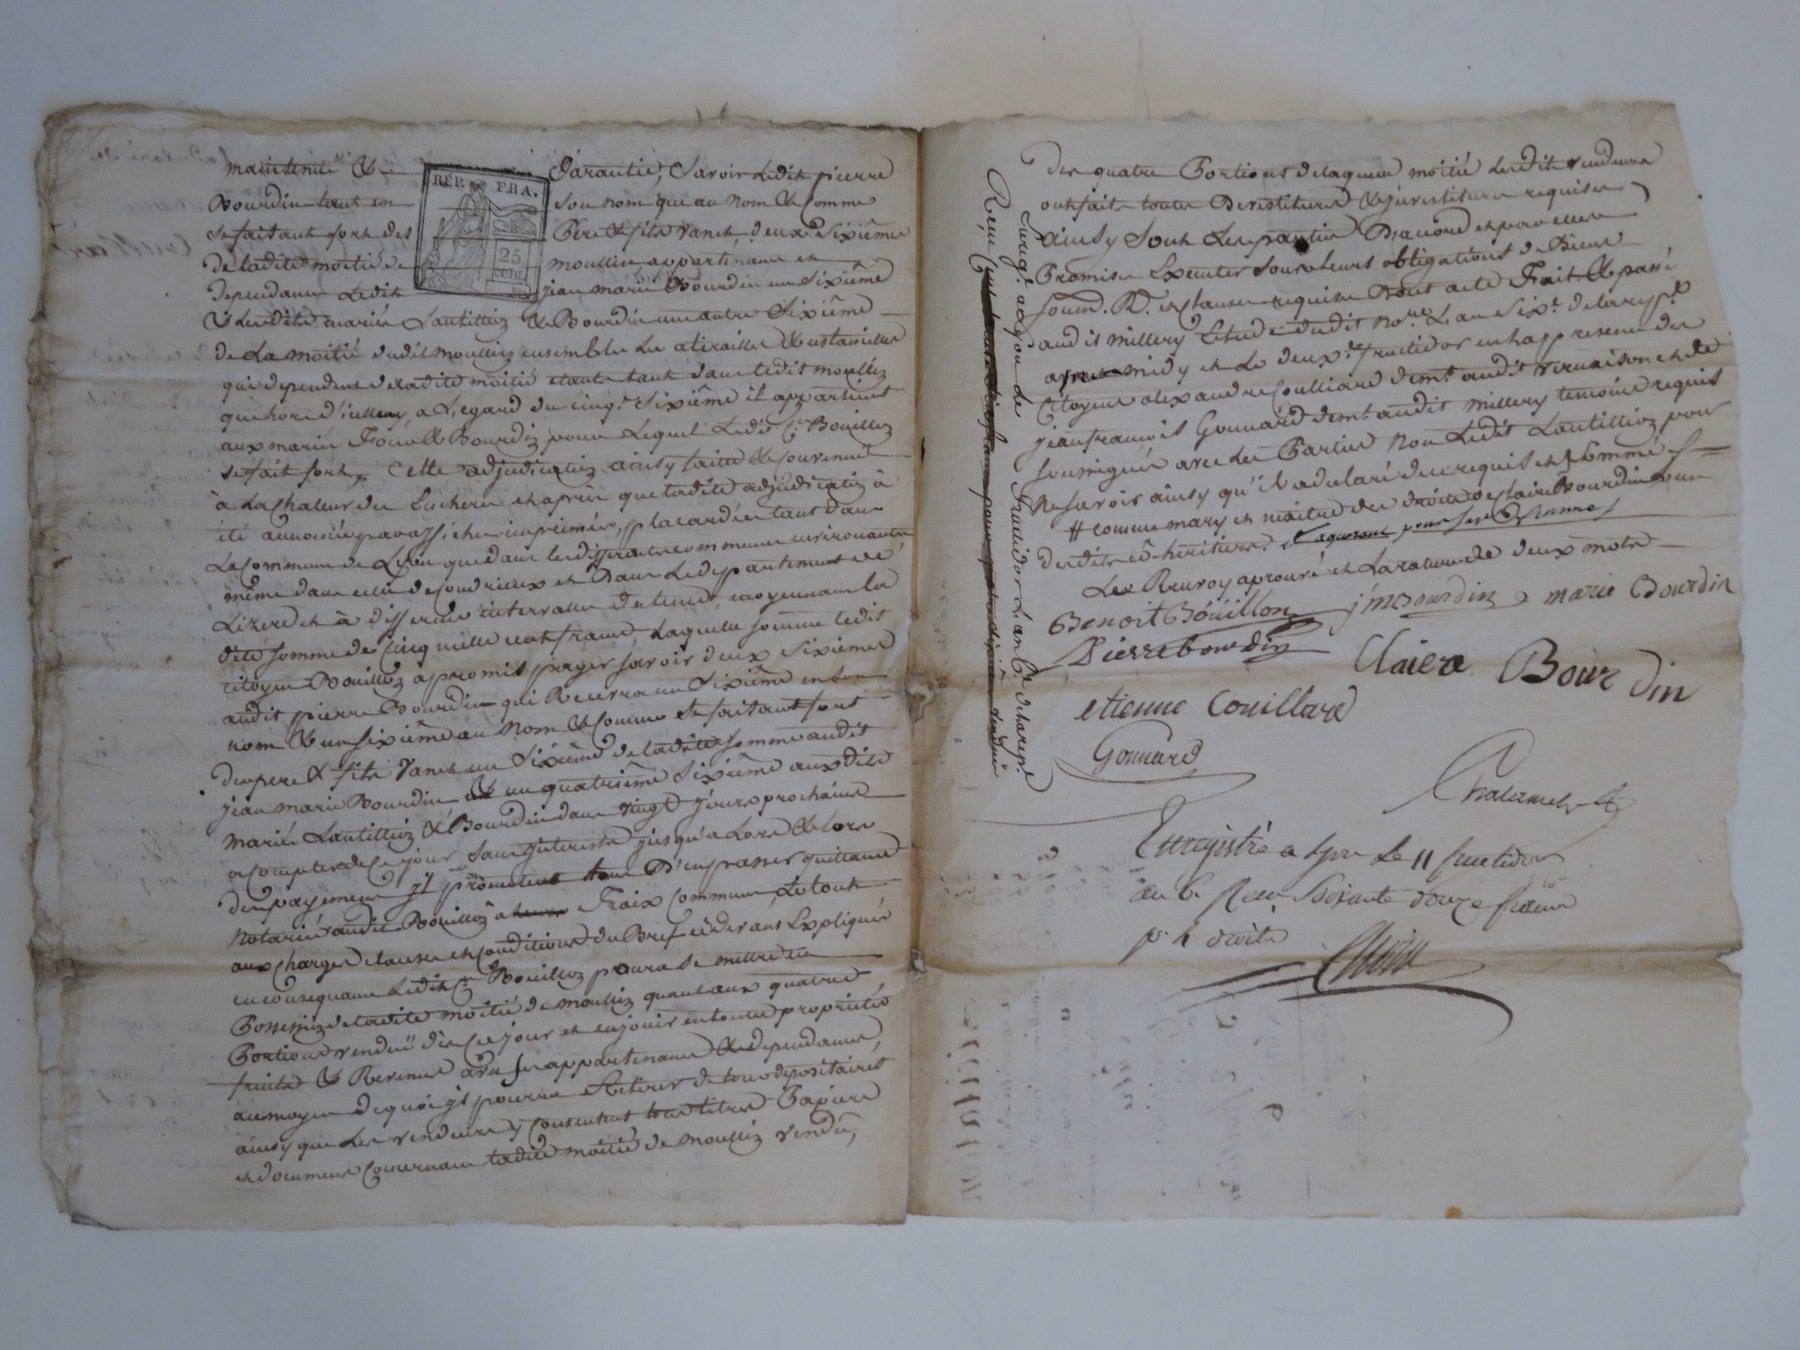 maintenue & Garantie, Savoir Ledit pierre
Bourdin tant en son nom que au nom & Comme
se faisant fort des Père & fils Vanel deux Sixièmes
de ladite moitié de moullin appartenances et
dependances Ledit jean marie Bourdin un Sixième
& Lesdits mariés Lantillioz & Bourdin un autre Sixième
de La moitié dudit moullin ensemble Les atirailles & ustancilles
qui dependent de ladite moitié etants tant dans ledit moullin
que hors d'iceluy, a L'egard du cinq.e Sixième il appartient
aux mariés & Bourdin pour Lequel Ledit C.n Bouillon
se fait fort, Cette adjudication ainsy faitte & convenue
à La chaleur des Encheres et après que ladite adjudication à
été annoncée par affiches imprimées, placardées tant dans
La commune de Lyon que dans les differentes communes environnantes
même dans celle de Condrieux et Dans Le departement de
L'izere et à differents intervalles de temps, moyennant la
dite somme de Cinq mille cent francs, Laquelle somme ledit
citoyen Bouillon a promis payer savoir deux Sixièmes
audit pierre Bourdin qui Recevra un Sixième en son
nom & un sixième au Nom & Comme se faisant fort
des pere & fils Vanel un Sixième de ladite somme audit
jean marie Bourdin & un quatrième Sixième auxdits
mariés Lantillioz & Bourdin dans vingt jours prochains
a compter de ce jour sans jnterests jusqu'a Lors & Lors
des payements jls promettent tous D'en passer quittance
Notariée audit Bouillon a Fraix Communs, Le tout
aux charges clauses et conditions du Bref cy devant Expliqués
en consequance Ledit C.n Bouillon poura se mettre en
Possession de ladite moitié de moullin quant aux quatre
Portions vendues dès ce jour et en jouir en toute propriété
fruits & Revenus avec ses appartenances & dependances,
au moyen de quoi jl pourra Retirer de tous depositaires
ainsy que Les vendeurs y consentent tous titres Papiers
et documents Concernant ladite moitié de moullin vendue,
des quatre Portions de laquelle moitié Lesdits vendeurs
ont fait toutes Devestitures & jnvestitures requises
ainsy sont Les parties D'accord et par elles
Promis Executer sous leurs obligations de Biens
soum. R.on et clauses requises Dont acte Fait & passé
audit millery Etude dudit no.re L'an Six.e de la rep.e
après midy et le deux.e fructidor en la presence des
Citoyens alexandre Couilliard dem.t audit vernaison et de
jean francois Gonnard dem.t audit millery temoins requis
soussignés avec Les Parties Non Ledit Lantillioz pour
Ne savoir ainsy qu'il a declaré de ce requis et sommé
# comme mary et maitre des droits de Claire Bourdin l'un
desdits co-heritiers.
Les Renvoy aprouvé et La rature de deux mots
Benoit Boüillon jmBourdin marie Bourdin
Pierre bourdin Claire Bourdin
etienne Couillard
Gonnard
Enregistré a Lyon Le 11 fructidor
an 6. Reçu soixante douze francs
p.r h droits
Enreg.é a Lyon le fructidor L'an 6.e
Reçu
RÉP. FRA.
25
CENT.